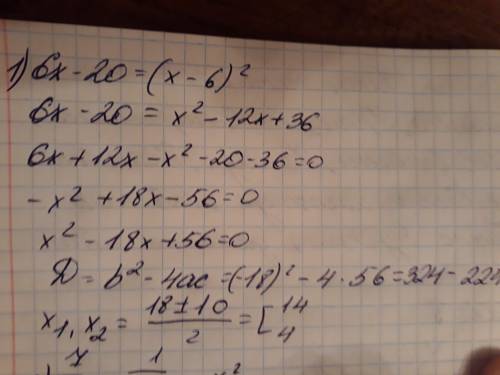 1) 6x - 20 = (x - 6)²
6x - 20 = x² - 12x + 36
6x + 12x - x² - 20 - 36 = 0
- x² + 18x - 56 = 0
x² - 18x + 56 = 0
D = b² - 4ac = (-18)² - 4 · 56 = 324 - 224
x₁, x₂ = (18 ± 10)/2 = [ 14 4